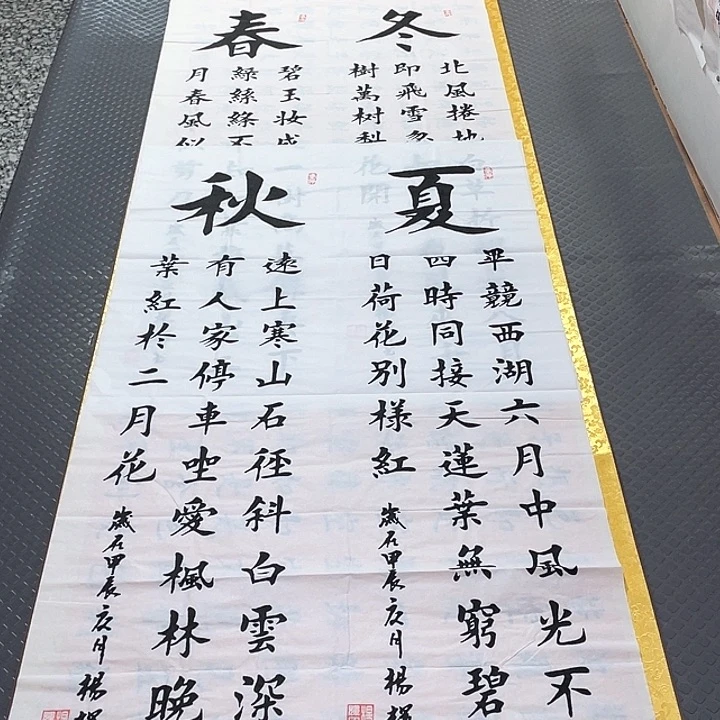 冬
北風捲地
即飛雪
樹萬树梨
春
碧玉妆成
綠絲絛不
月春風似
夏
畢競西湖六月中風光不
四時同接天蓮葉無窮碧
日荷花别樣紅
歲在甲辰 月 楊
秋
遠上寒山石徑斜白雲深
有人家停車坐愛楓林晚
葉紅於二月花
歲在甲辰 月 楊